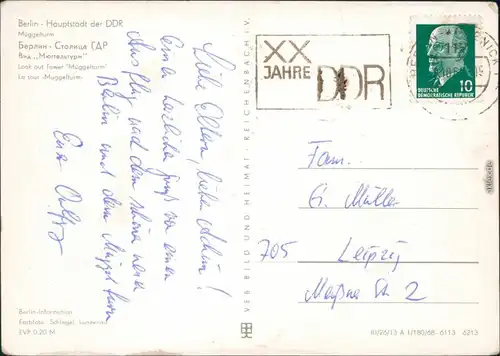 Berlin - Hauptstadt der DDR
Müggelturm
Берлин - Столица ГДР
Вид „Мюггельтурм"
Look out Tower "Müggelturm"
La tour „Müggelturm"
Liebe Eltern, liebe
Eine herzliche von einem
Ausflug nach dem schönen neuen
Berlin und dem Müggelturm
Euer
Berlin-Information
Farbfoto: Schlegel,
EVP 0,20 M
VEB BILD UND HEIMAT REICHENBACH i. V.
XX
JAHRE
DDR
10
DEUTSCHE
DEMOKRATISCHE REPUBLIK
Fam.
G. Müller
705 Leipzig
Str. 2
III/26/13 A 1/180/68 6113 6213